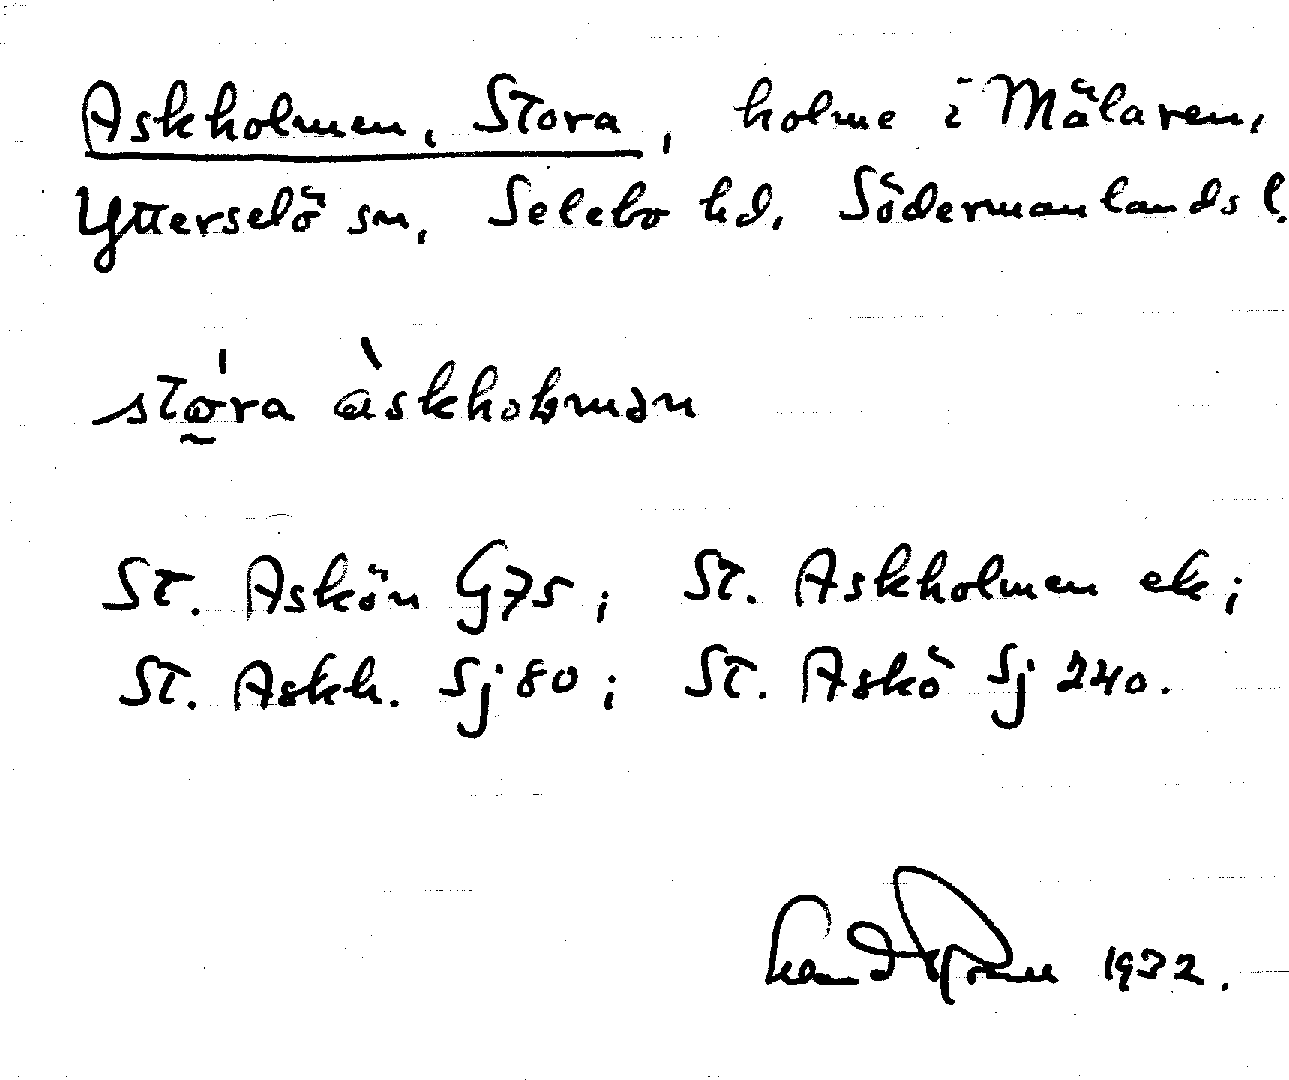 Askholmen, Stora, holme i Mälaren,
Ytterselö sn, Selebo hd, Södermanlands l.
stó̰ra àskhoḷmən
St. Askön G75; St. Askholmen ek;
St. Askh. Sj 80; St. Askö Sj 240.
1932.